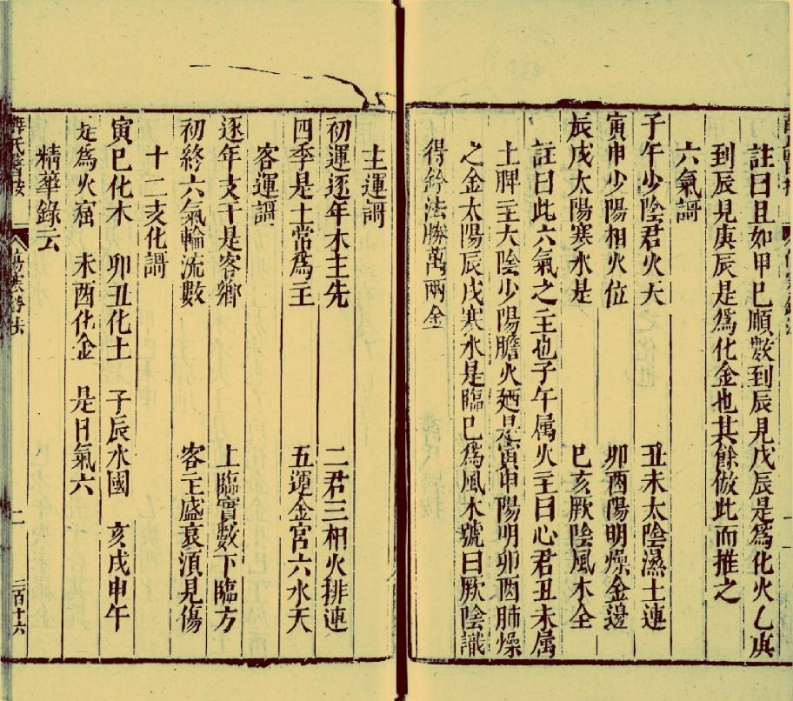 註曰且如甲巳順數到辰見戊辰是爲化火乙庚
到辰見庚辰是爲化金也其餘倣此而推之
六氣謌
子午少陰君火天 丑未太陰濕土連
寅申少陽相火位 卯酉陽明燥金邊
辰戌太陽寒水是 巳亥厥陰風木全
註曰此六氣之主也子午属火主曰心君丑未属
土脾主大陰少陽膽火廼是寅申陽明卯酉肺燥
之金太陽辰戌寒水是臨巳爲風木號曰厥陰識
得鈐法勝萬兩金
主運謌
初運逐年木主先 二君三相火排連
四季是土常爲主 五運金宮六水天
客運謌
逐年支干是客鄉 上臨實數下臨方
初終六氣輪流數 客主盛衰湏見傷
十二亥化謌
寅巳化木 卯丑化土 子辰水國 亥戌申午
是爲火窟 未酉化金 是日氣六
精華錄云
薛氏醫按
二 二百十六